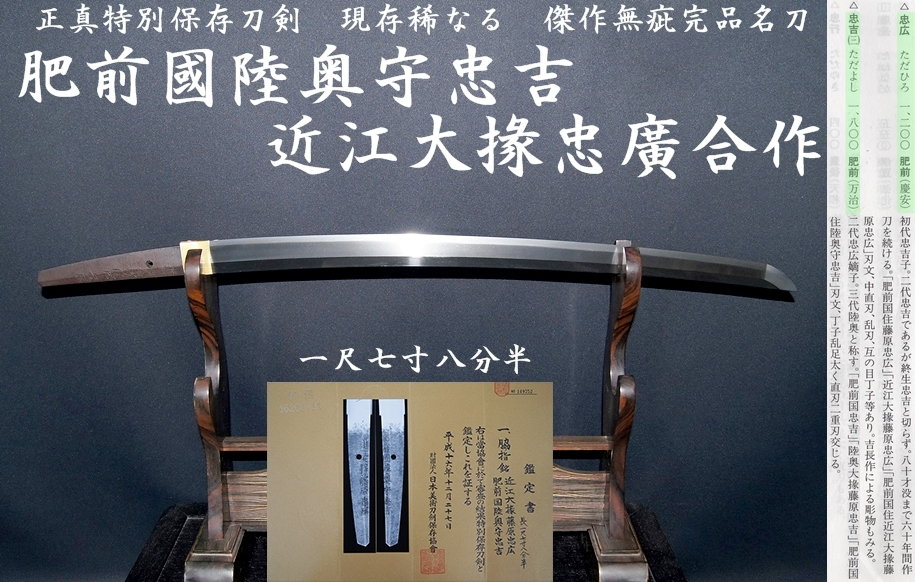 正真特別保存刀剣　現存稀なる　傑作無疵完品名刀
肥前國陸奥守忠吉
近江大掾忠廣合作
△忠広　ただひろ　一、二〇〇　肥前(慶安)　初代忠吉子。二代忠吉であるが終生忠吉と切らず。八十才没まで六十年間作
刀を続ける。「肥前国住藤原忠広」「近江大掾藤原忠広」「肥前国住近江大掾藤
原忠広」刃文、中直刃、乱刃、互の目丁子等あり。吉長作による彫物もみる。
△忠吉(三)　ただよし　一、八〇〇　肥前(万治)　二代忠広嫡子。三代陸奥と称す。「肥前国忠吉」「陸奥大掾藤原忠吉」「肥前国
住陸奥守忠吉」刃文、丁子乱足太く直刃二重刃交じる。
一尺七寸八分半
鑑定書
一、脇指 銘 近江大掾藤原忠広
肥前国陸奥守忠吉
長一尺七寸八分半
右は當協會に於て審査の結果特別保存刀剣と
鑑定しこれを証する
平成十六年十二月二十七日
財団法人日本美術刀剣保存協會